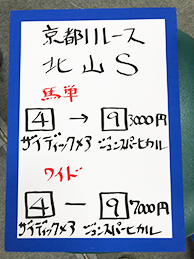 京都11レース
北山S
馬単
4 → 9 3000円
サイディックメア ニホンスーパーヒカル
ワイド
4 — 9 7000円
サイディックメア ニホンスーパーヒカル